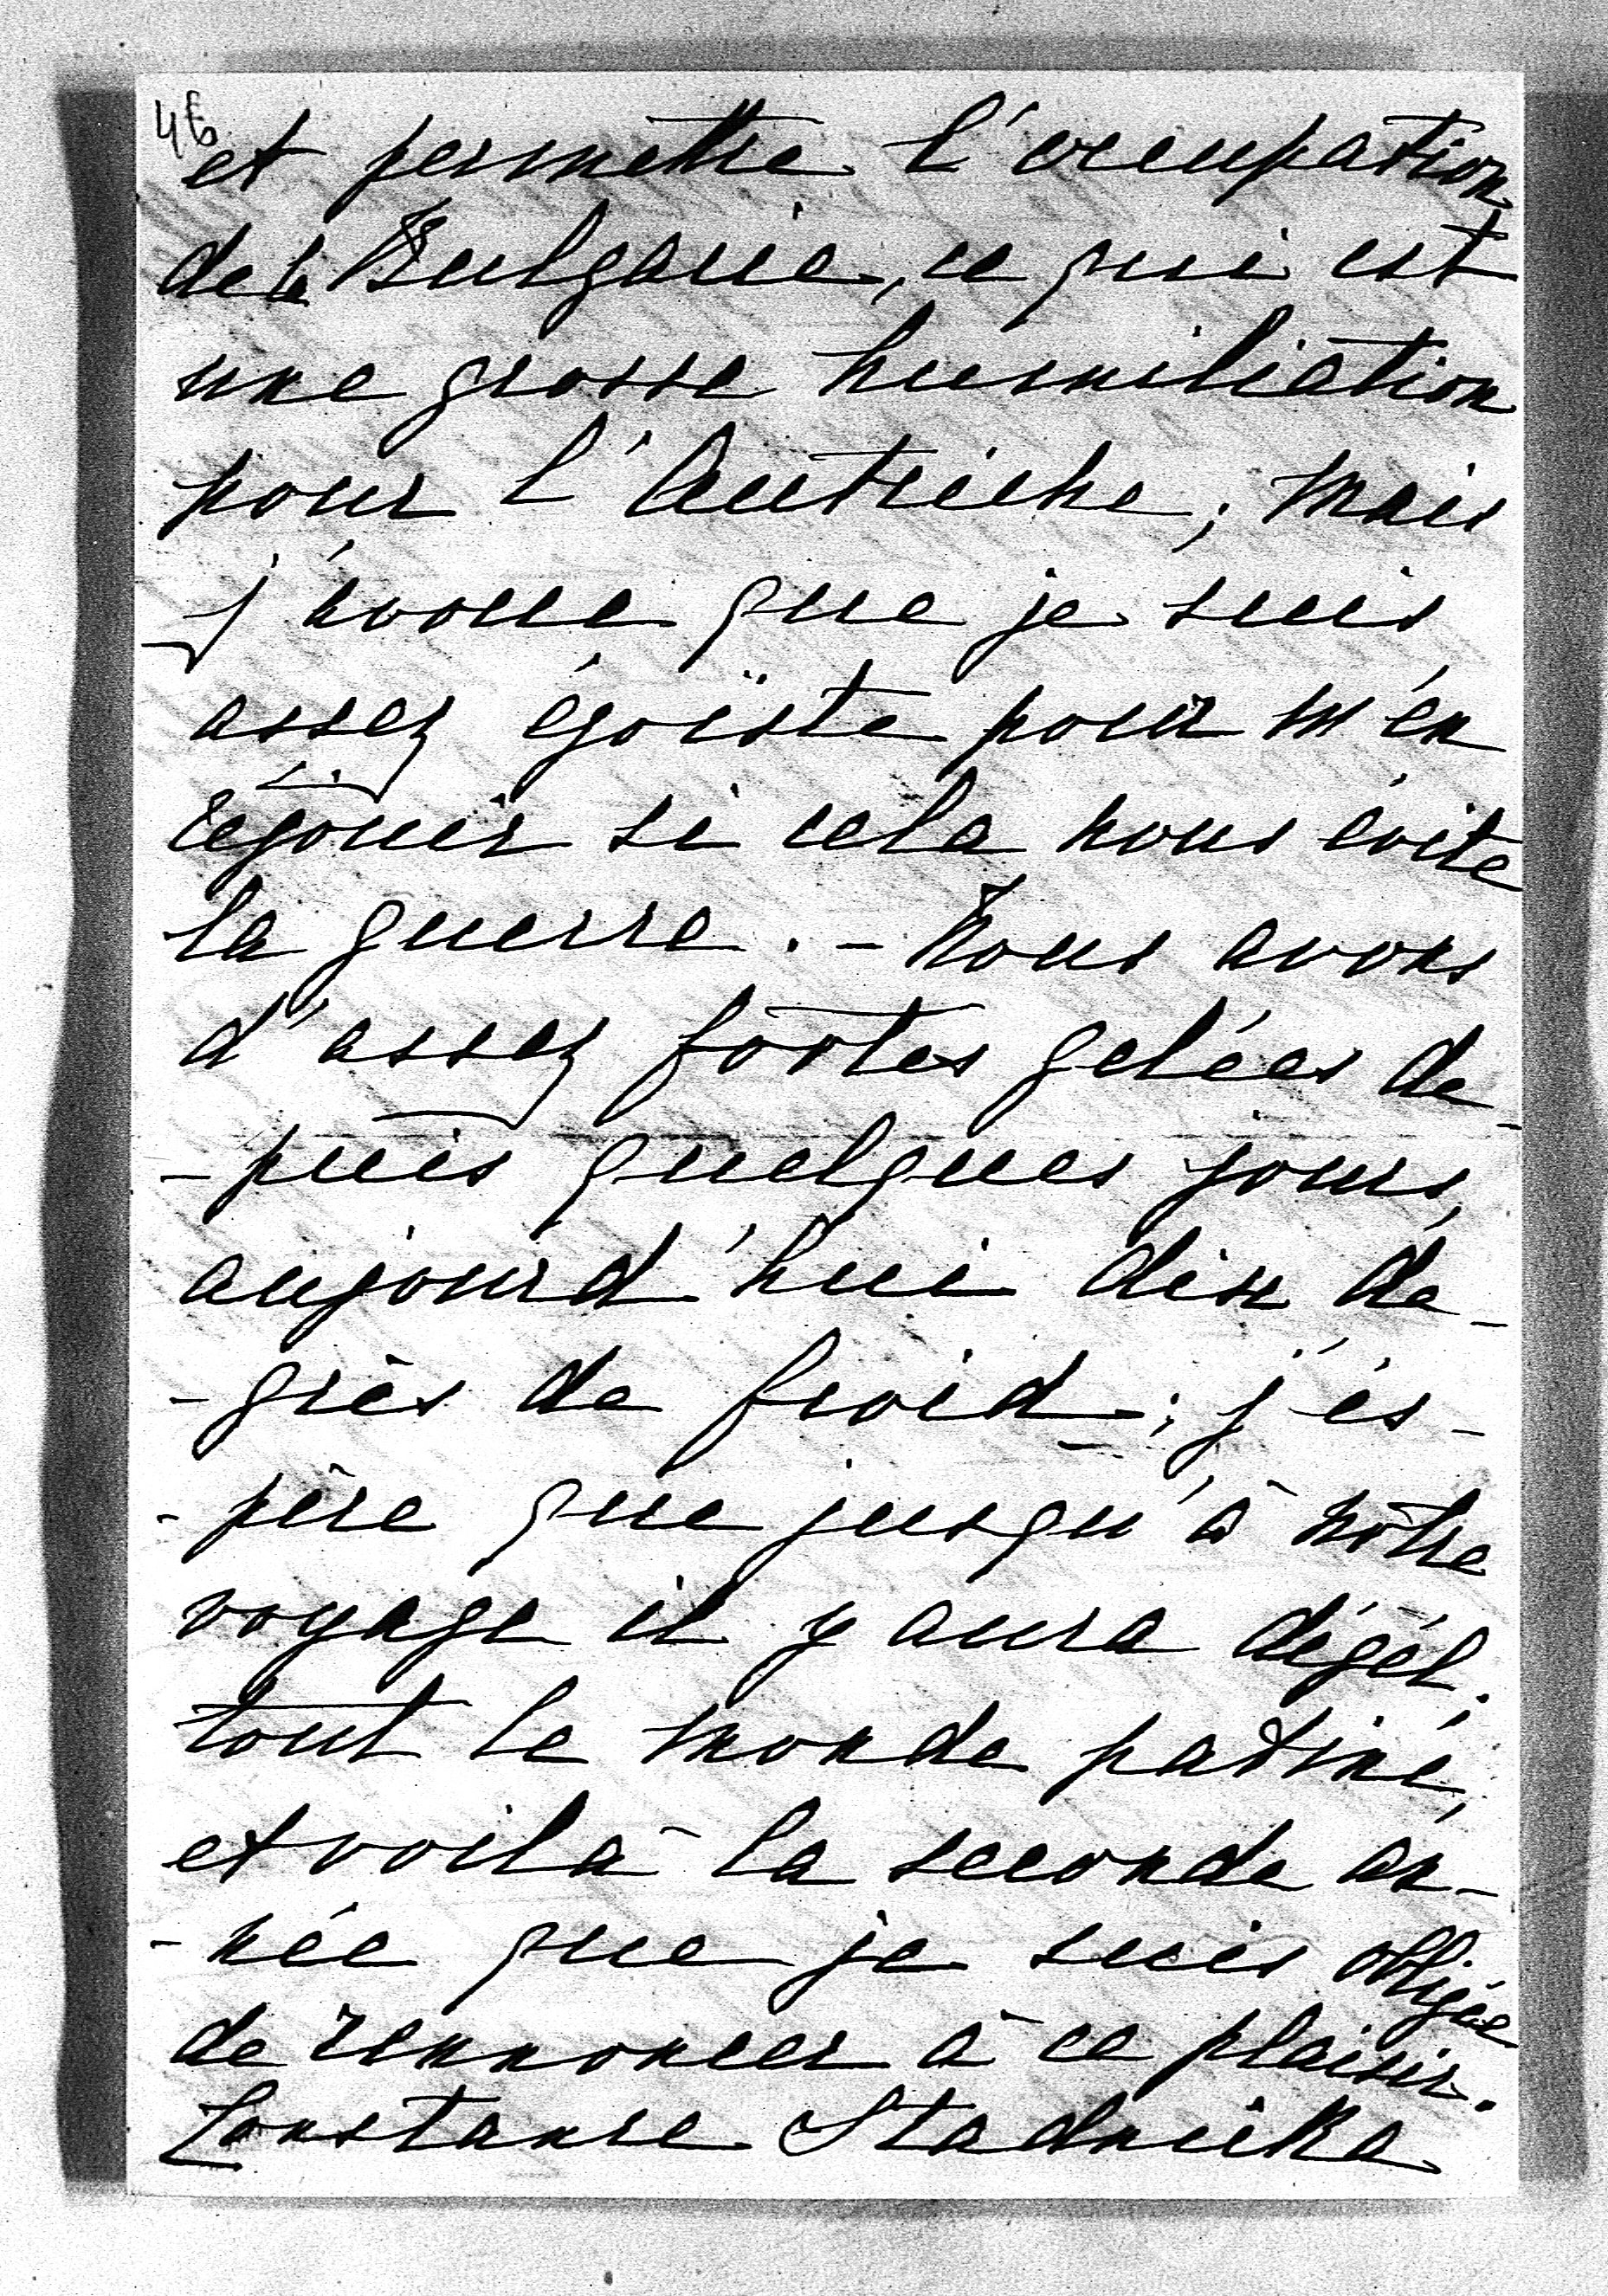 46
et permettre l'occupation
de la Bulgarie, ce qui est
une grosse humiliation
pour l'Autriche; mais
j'avoue que je suis
assez égoïste pour m'en
réjouir si cela nous évite
la guerre. - Nous avons
d'assez fortes gelées de-
-puis quelques jours,
aujourd'hui dix dé-
-grès de froid; j'es-
-père que jusqu'à nôtre
voyage il y aura dégél.
tout le monde patine,
et voilà la seconde an-
-née que je suis obligée
de rennoncer à ce plaisir.
Constance Stadnicka